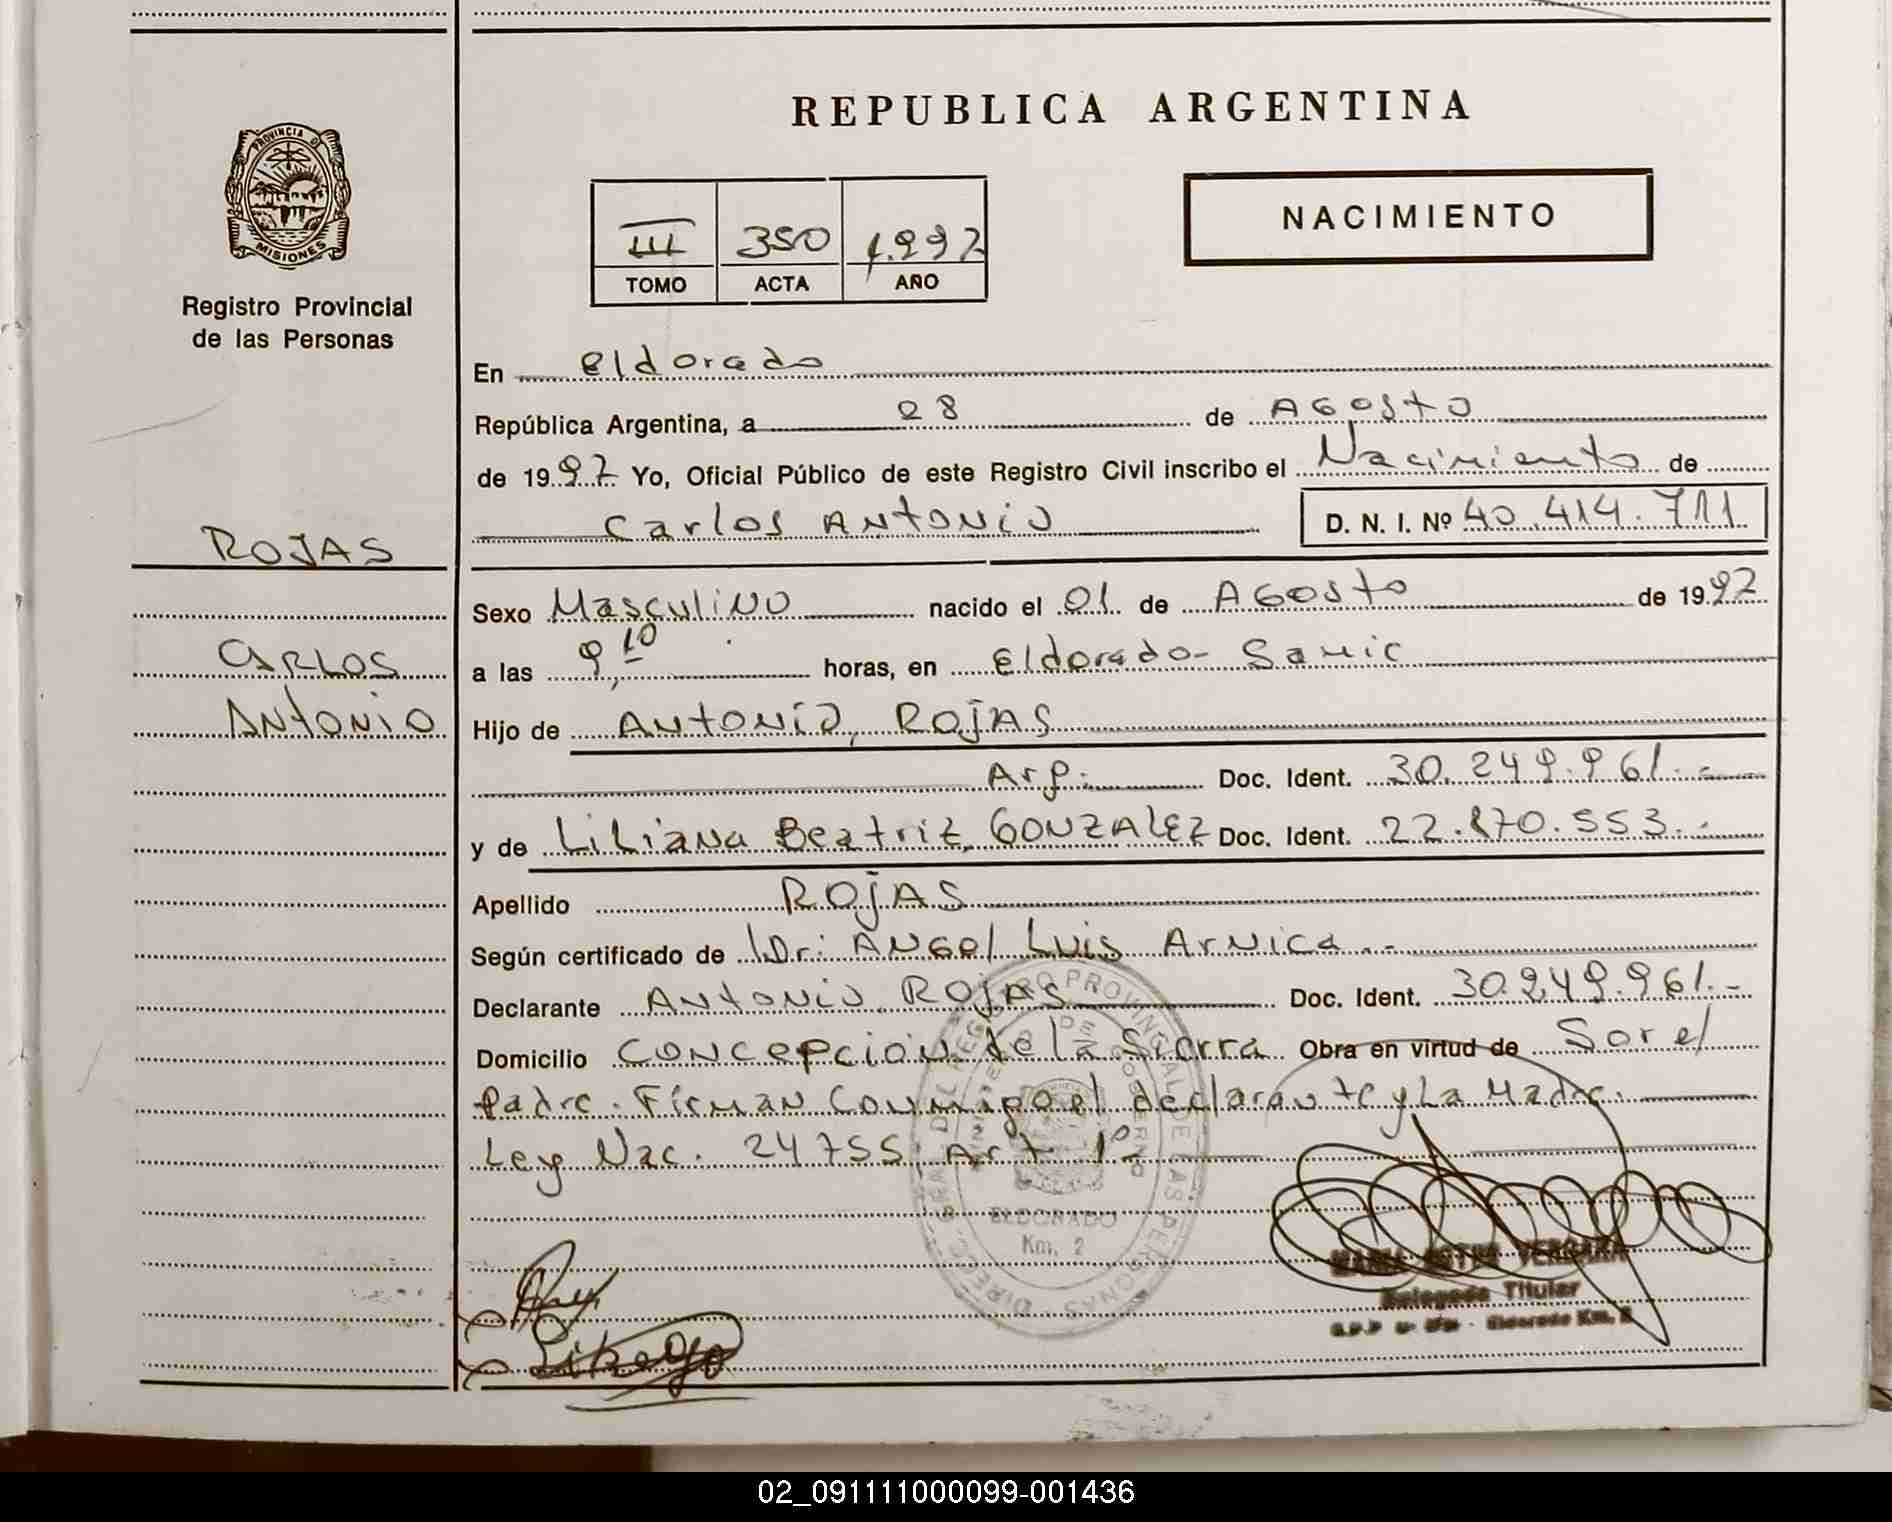 PROVINCIA DE
MISIONES
Registro Provincial
de las Personas
ROJAS
CARLOS
ANTONIO
REPUBLICA ARGENTINA
III 350 1.997
TOMO ACTA AÑO
NACIMIENTO
En Eldorado
República Argentina, a 28 de AGOSTO
de 1997 Yo, Oficial Público de este Registro Civil inscribo el Nacimiento de
Carlos ANTONIO D. N. I. Nº 40.414.711
Sexo MasculiNO nacido el 01 de AGOSTO de 1997
a las 9,10 horas, en Eldorado- Samic
Hijo de ANTONIO, ROJAS
Arg. Doc. Ident. 30.249.961.-
y de LiLiana Beatriz, GONZALEZ Doc. Ident. 22.870.553.-
Apellido ROJAS
Según certificado de Dr: ANGel Luis Arnica.-
Declarante ANTONIO, ROJAS Doc. Ident. 30.249.961.-
Domicilio CONcepción de la Sierra Obra en virtud de Ser el
Padre. Firman Conmigo el declarante y La Madre.
Ley Nac. 24755, Art 1º
DIRECC. GRAL. DEL REGISTRO PROVINCIAL DE LAS PERSONAS
MINISTERIO DE GOBIERNO
ELDORADO
Km. 2
VERGARA
Delegada Titular
Eldorado Km. 2
02_091111000099-001436